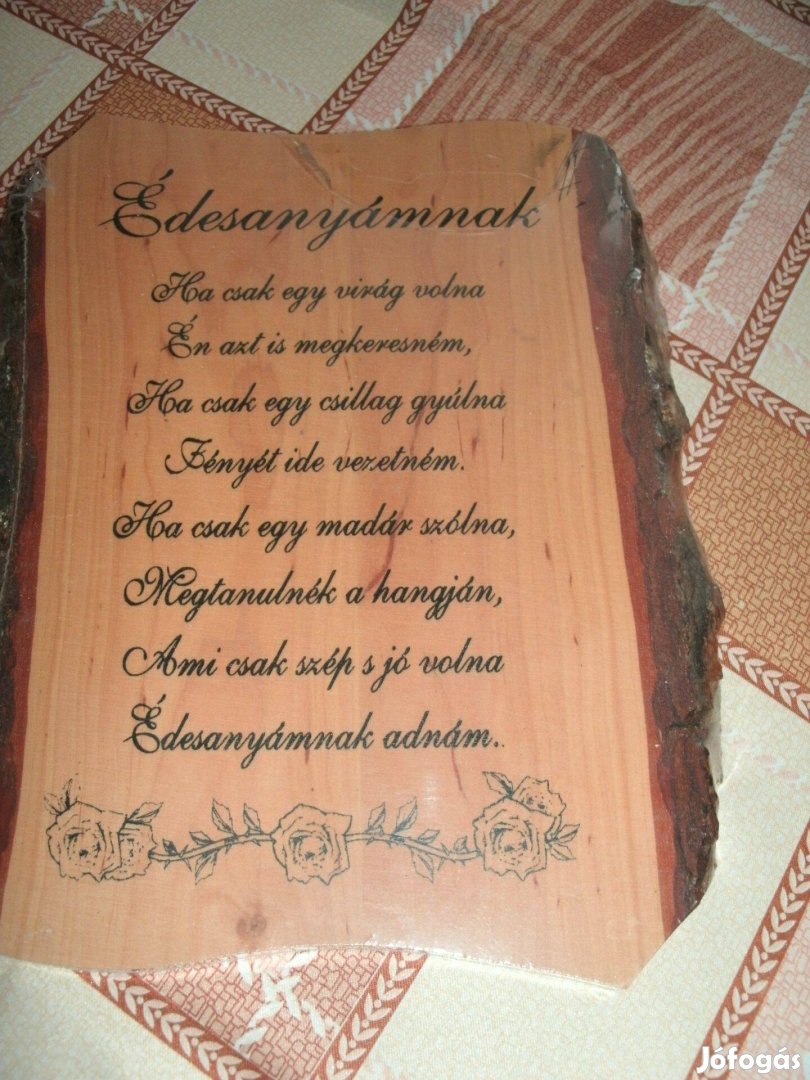 Édesanyámnak
Ha csak egy virág volna
Én azt is megkeresném,
Ha csak egy csillag gyúlna
Fényét ide vezetném.
Ha csak egy madár szólna,
Megtanulnék a hangján,
Ami csak szép s jó volna
Édesanyámnak adnám..
Jófogás